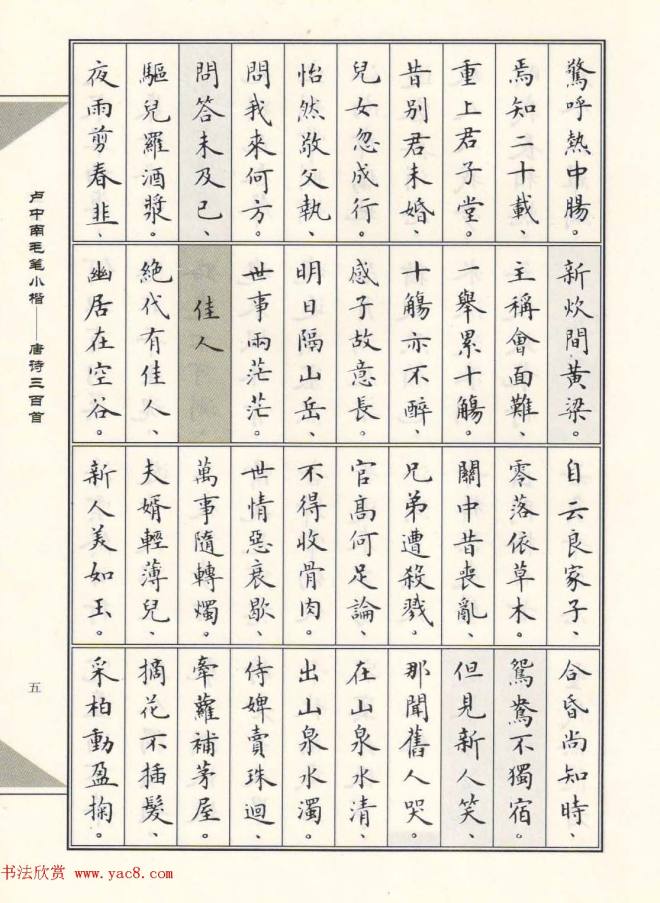 驚呼熱中腸。
焉知二十載、
重上君子堂。
昔別君未婚、
兒女忽成行。
怡然敬父執、
問我來何方。
問答未及已、
驅兒羅酒漿。
夜雨剪春韭、
新炊間黃粱。
主稱會面難、
一舉累十觴。
十觴亦不醉、
感子故意長。
明日隔山岳、
世事兩茫茫。
佳人
絕代有佳人、
幽居在空谷。
自云良家子、
零落依草木。
關中昔喪亂、
兄弟遭殺戮。
官髙何足論、
不得收骨肉。
世情惡衰歇、
萬事隨轉燭。
夫婿輕薄兒、
新人美如玉。
合昏尚知時、
鴛鴦不獨宿。
但見新人笑、
那聞舊人哭。
在山泉水清、
出山泉水濁。
侍婢賣珠迴、
牽蘿補茅屋。
摘花不插髮、
采柏動盈掬。
卢中南毛笔小楷——唐诗三百首
五
书法欣赏 www.yac8.com